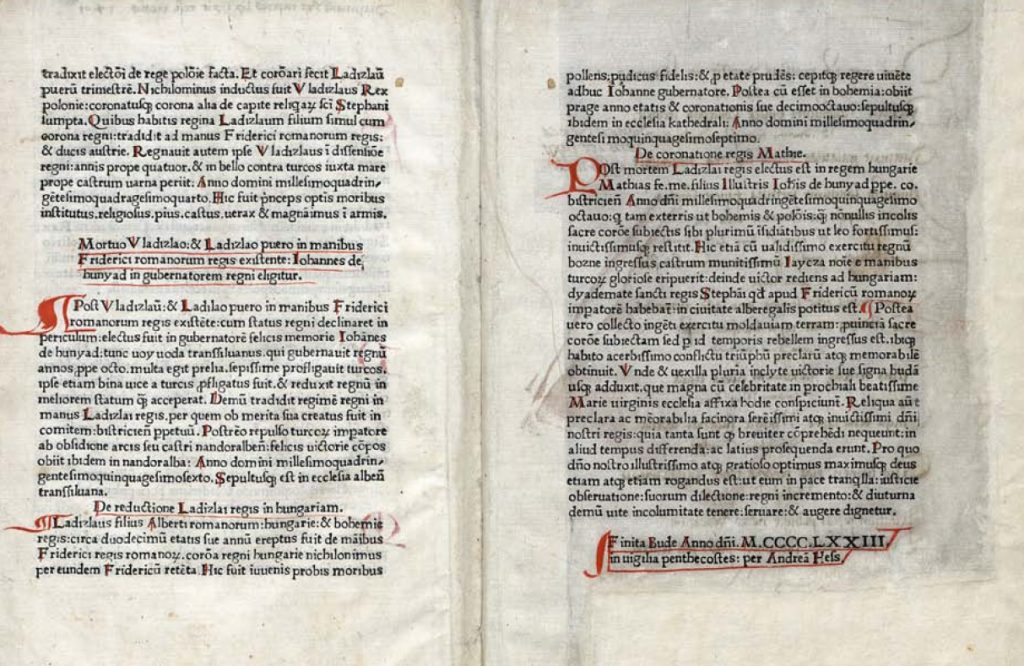 tradixit electõi de rege polõie facta. Et corõari fecit Ladizlaũ
puerũ trimestrẽ. Nichilominus inductus fuit Vladizlaus Rex
polonie: coronatusq̃ corona alia de capite reliq̃aꝝ sc̃i Stephani
sumpta. Quibus habitis regina Ladizlaum filium simul cum
corona regni: tradidit ad manus Friderici romanorum regis:
& ducis austrie. Regnauit autem ipse Vladizlaus ĩ dissensiõe
regni: annis prope quatuor. & in bello contra turcos iuxta mare
prope castrum uarna periit. Anno domini millesimoquadrin-
gẽtesimoquadragesimoquarto. Hic fuit p̃nceps optis moribus
institutus. religiosus. pius. castus. uerax & magnãimus ĩ armis.
Mortuo Vladizlao: & Ladizlao puero in manibus
Friderici romanorum regis existente: Iohannes de
hunyad in gubernatorem regni eligitur.
Post Vladizlaũ: & Ladilao puero in manibus Friderici
romanorum regis existẽte: cum status regni declinaret in
periculum: electus fuit in gubernatorẽ felicis memorie Iohãnes
de hunyad: tunc uoyuoda transsiluanus. qui gubernauit regnũ
annos, ppe octo. multa egit prelia. sepissime profligauit turcos.
ipse etiam bina uice a turcis ,pfligatus fuit. & reduxit regnũ in
meliorem statum q̃ acceperat. Demũ tradidit regimẽ regni in
manus Ladizlai regis. per quem ob merita sua creatus fuit in
comitem: bistricieñ ppetuũ. Postrẽo repulso turcoꝝ impatore
ab obsidione arcis seu castri nandoralbeñ: felicis uictorie cõpos
obiit ibidem in nandoralba: Anno domini millesimoquadrin-
gentesimoquinquagesimosexto. Sepultusq̃ est in ecclesia albeñ
transsiluana.
De reductione Ladizlai regis in hungariam.
Ladizlaus filius Alberti romanorum: hungarie: & bohemie
regis: circa duodecimũ etatis sue annũ ereptus fuit de mãibus
Friderici regis romanoꝝ. corõa regni hungarie nichilonimus
per eundem Fridericũ retẽta. Hic fuit iuuenis probis moribus
pollens: pudicus fidelis: & ,p etate prudẽs: cepitq̃ regere uiuẽte
adhuc Iohanne gubernatore. Postea cũ esset in bohemia: obiit
prage anno etatis & coronationis sue decimooctauo: sepultusq̃
ibidem in ecclesia kathedrali: Anno domini millesimoquadrin-
gentesimoquinquagesimoseptimo.
De coronatione regis Mathie.
Post mortem Ladizlai regis electus est in regem hungarie
Mathias fe. me. filius Illustris Iohis de hunyad ppe. co.
bistricieñ Anno dñi millesimoquadringẽtesimoquinquagesimo
octauo: q tam exterris ut bohemis & polõis: q̃ nonullis incolis
sacre corõe subiectis sibi plurimũ ĩsidiatibus ut leo fortissimus:
inuictissimusq̃ restitit. Hic etiã cũ ualidissimo exercitu regnũ
bozne ingressus castrum munitissimũ Iaycza noĩe e manibus
turcoꝝ gloriose eripuerit: deinde uictor rediens ad hungariam:
dyademate sancti regis Stephãi qđ apud Fridericũ romanoꝝ
impatorẽ habebat̃: in ciuitate alberegalis potitus est. Postea
uero collecto ingẽti exercitu moldauiam terram: puincrã sacre
corõe subiectam sed p id temporis rebellem ingressus est. ibiq̃
habito acerbissimo conflictu triũphũ preclarũ atq̃ memorabilẽ
obtinuit. Vnde & uexilla pluria inclyte uictorie sue signa budã
usq̃ adduxit. que magna cũ celebritate in prochiali beatissime
Marie uirginis ecclesia affixa hodie conspiciunt̃. Reliqua aũt
preclara ac mẽorabilia facinora serẽissimi atq̃ inuictissimi dñi
nostri regis: quia tanta sunt q̃ breuiter cõprehẽdi nequeunt: in
aliud tempus differenda: ac latius prosequenda erunt. Pro quo
dño nostro illustrissimo atq̃ gratioso optimus maximusq̃ deus
etiam atq̃ etiam rogandus est: ut eum in pace tranq̃lla: iusticie
obseruatione: suorum dilectione: regni incremento: & diuturna
demũ uite incolumitate tenere: seruare: & augere dignetur.
Finita Bude Anno dñi. M.CCCC.LXXIII
in uigilia penthecostes: per Andreã Hess